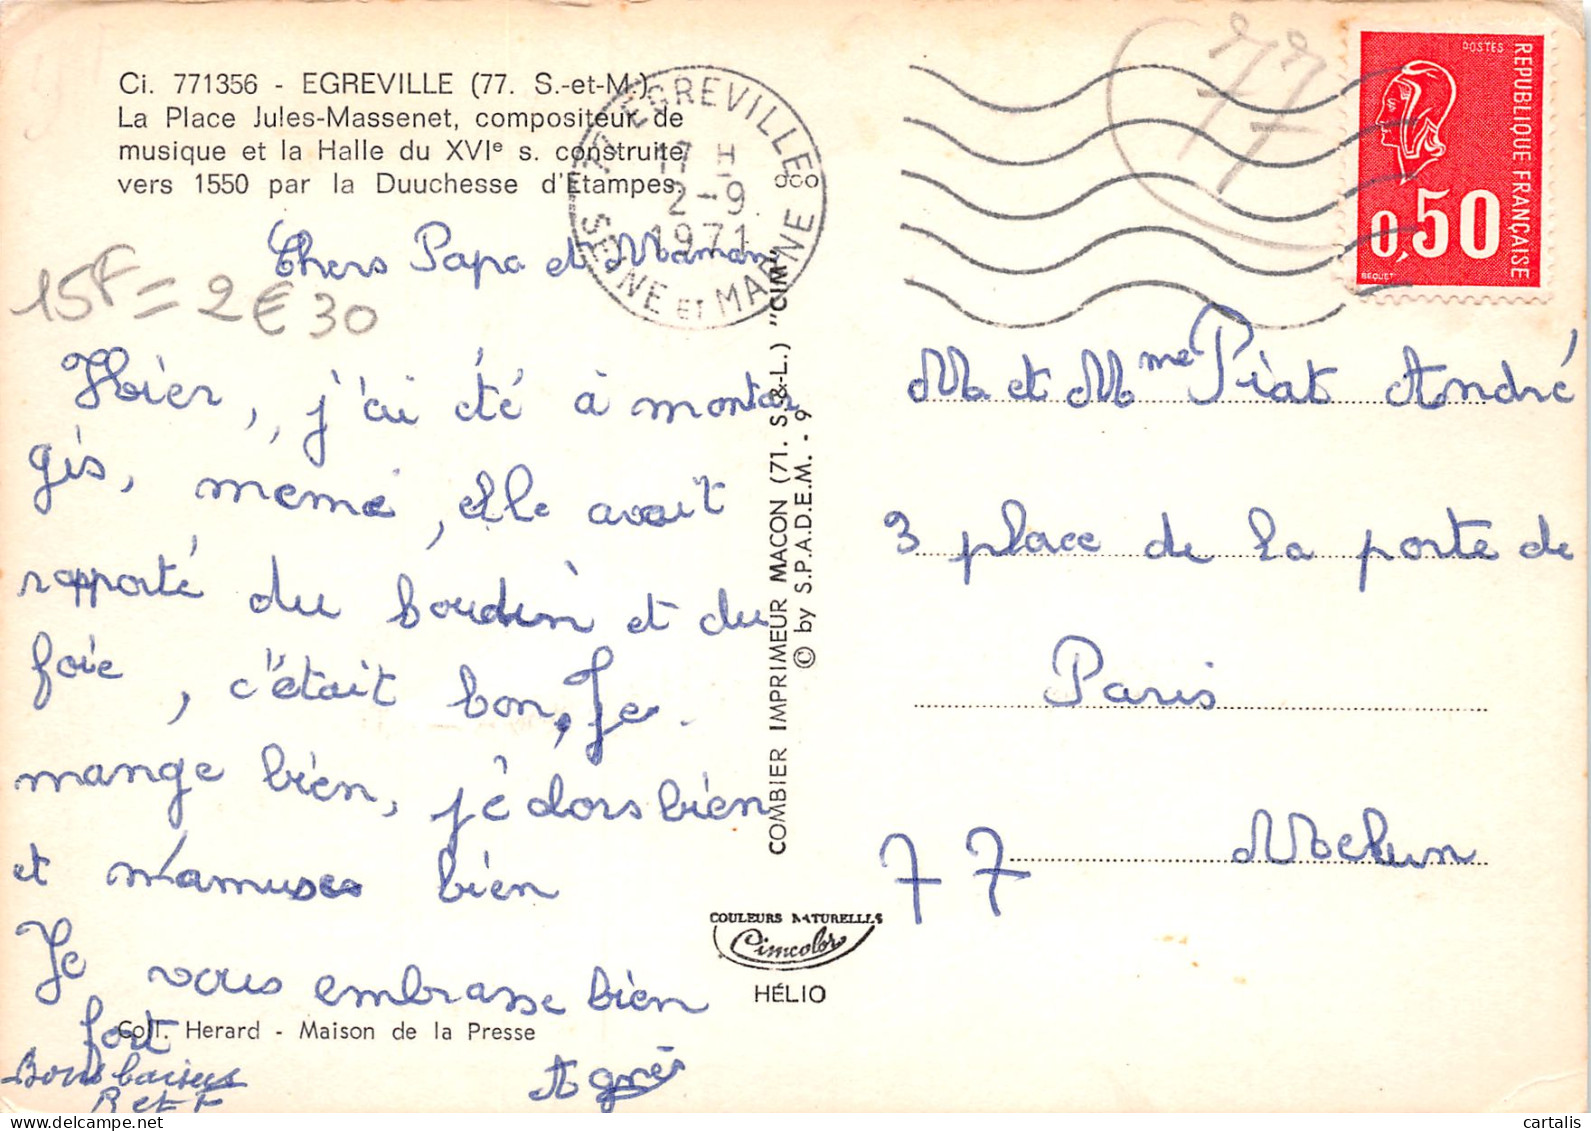 Ci. 771356 - EGREVILLE (77. S.-et-M.).
La Place Jules-Massenet, compositeur de
musique et la Halle du XVIe s. construite
vers 1550 par la Duuchesse d'Etampes.
77 EGREVILLE
17 H
2-9
1971
SEINE ET MARNE
77
POSTES
REPUBLIQUE FRANÇAISE
0,50
BEQUET
15F = 2€30
Chers Papa et Maman
Hier, j'ai été à montar
gis, memé, elle avait
rapporté du boudin et du
foie, c'était bon, Je
mange bien, je dors bien
et m'amuses bien
Je vous embrasse bien
fort
Agnès
Bons baisers
R et F
Coll. Herard - Maison de la Presse
COMBIER IMPRIMEUR MACON (71. S.-&-L.) "CIM"
© by S.P.A.D.E.M. - 9
COULEURS NATURELLES
Cimcolor
HÉLIO
M. et Mme Piat André
3 place de la porte de
Paris
77 Melun
cartalis